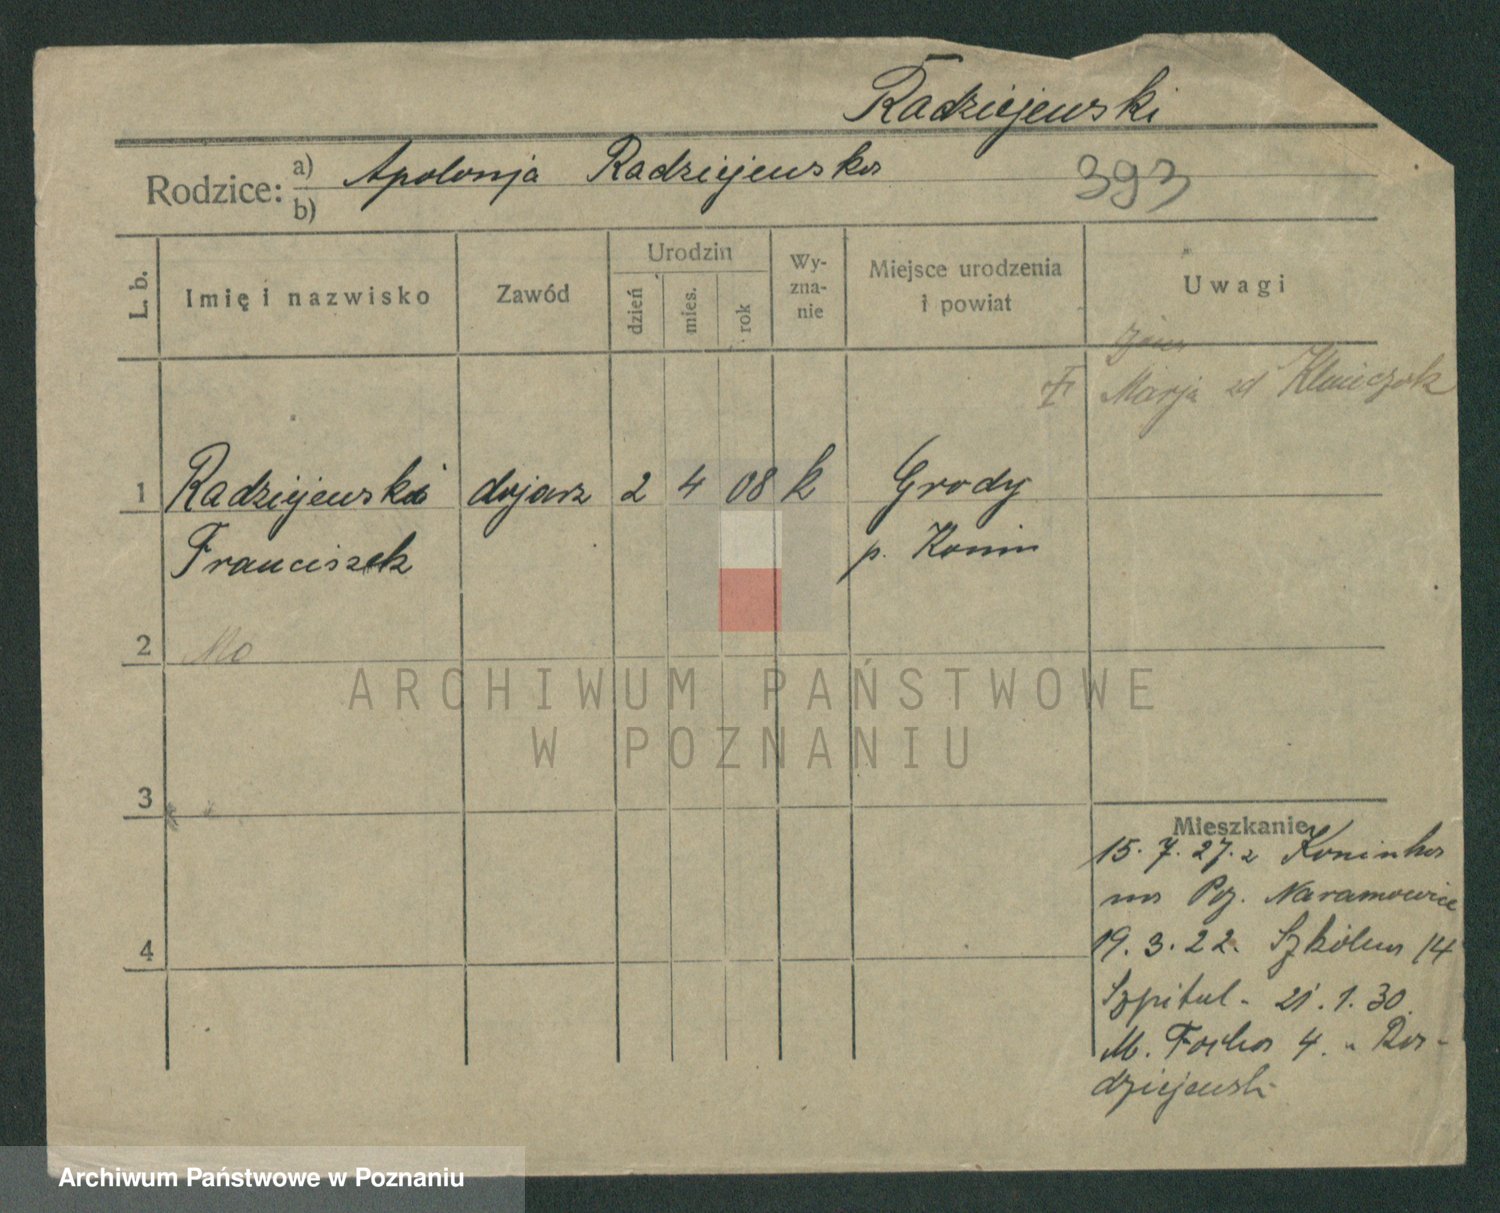 Radziejewski
Rodzice: a) Apolonja Radziejewska
b)
393
L. b.
Imię i nazwisko
Zawód
Urodzin
dzień
mies.
rok
Wy-
zna-
nie
Miejsce urodzenia
i powiat
Uwagi
Marja zd
1 Radziejewski dojarz 2 4 08 k Grody
Franciszek p. Konin
2
3
4
Mieszkanie
15. 7. 27. z Koninka
na Poz. Naramowice
19. 3. 22. Szkólna 14
Szpital - 21. 1. 30.
M. Focha 4. Ra-
dziejewski
ARCHIWUM PAŃSTWOWE
W POZNANIU
Archiwum Państwowe w Poznaniu